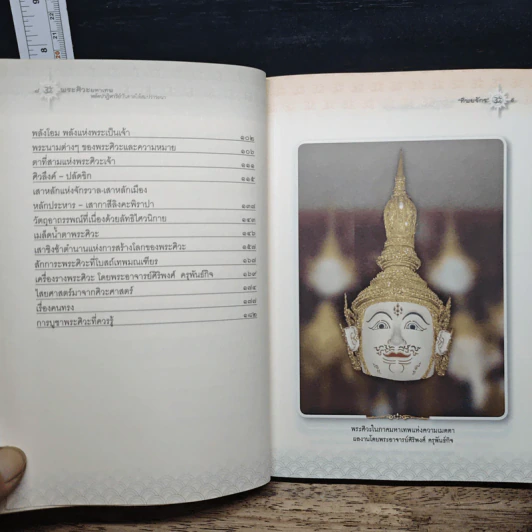 พระศิวะมหาเทพ
พลังโอม พลังแห่งพระเป็นเจ้า ๑๐๒
พระนามต่างๆ ของพระศิวะและความหมาย ๑๐๖
ตาที่สามแห่งพระศิวะเจ้า ๑๑๑
ศิวลึงค์ - ปลัดขิก ๑๑๕
เสาหลักแห่งจักรวาล-เสาหลักเมือง
หลักประหาร - เสากาลีลิงคะพิราปา ๑๓๗
วัตถุอาถรรพณ์ที่เนื่องด้วยลัทธิไศวนิกาย ๑๔๓
เมล็ดน้ำตาพระศิวะ ๑๔๖
เสาชิงช้าตำนานแห่งการสร้างโลกของพระศิวะ ๑๕๗
สักการะพระศิวะที่โบสถ์เทพมณเฑียร ๑๖๗
เครื่องรางพระศิวะ โดยพระอาจารย์ศิริพงศ์ ครุพันธ์กิจ ๑๖๙
ไสยศาสตร์มาจากศิวะศาสตร์ ๑๗๔
เรื่องคนทรง ๑๗๗
การบูชาพระศิวะที่ควรรู้ ๑๘๒
พระศิวะในภาคมหาเทพแห่งความเมตตา
ผลงานโดยพระอาจารย์ศิริพงศ์ ครุพันธ์กิจ
8
9
20
21
22